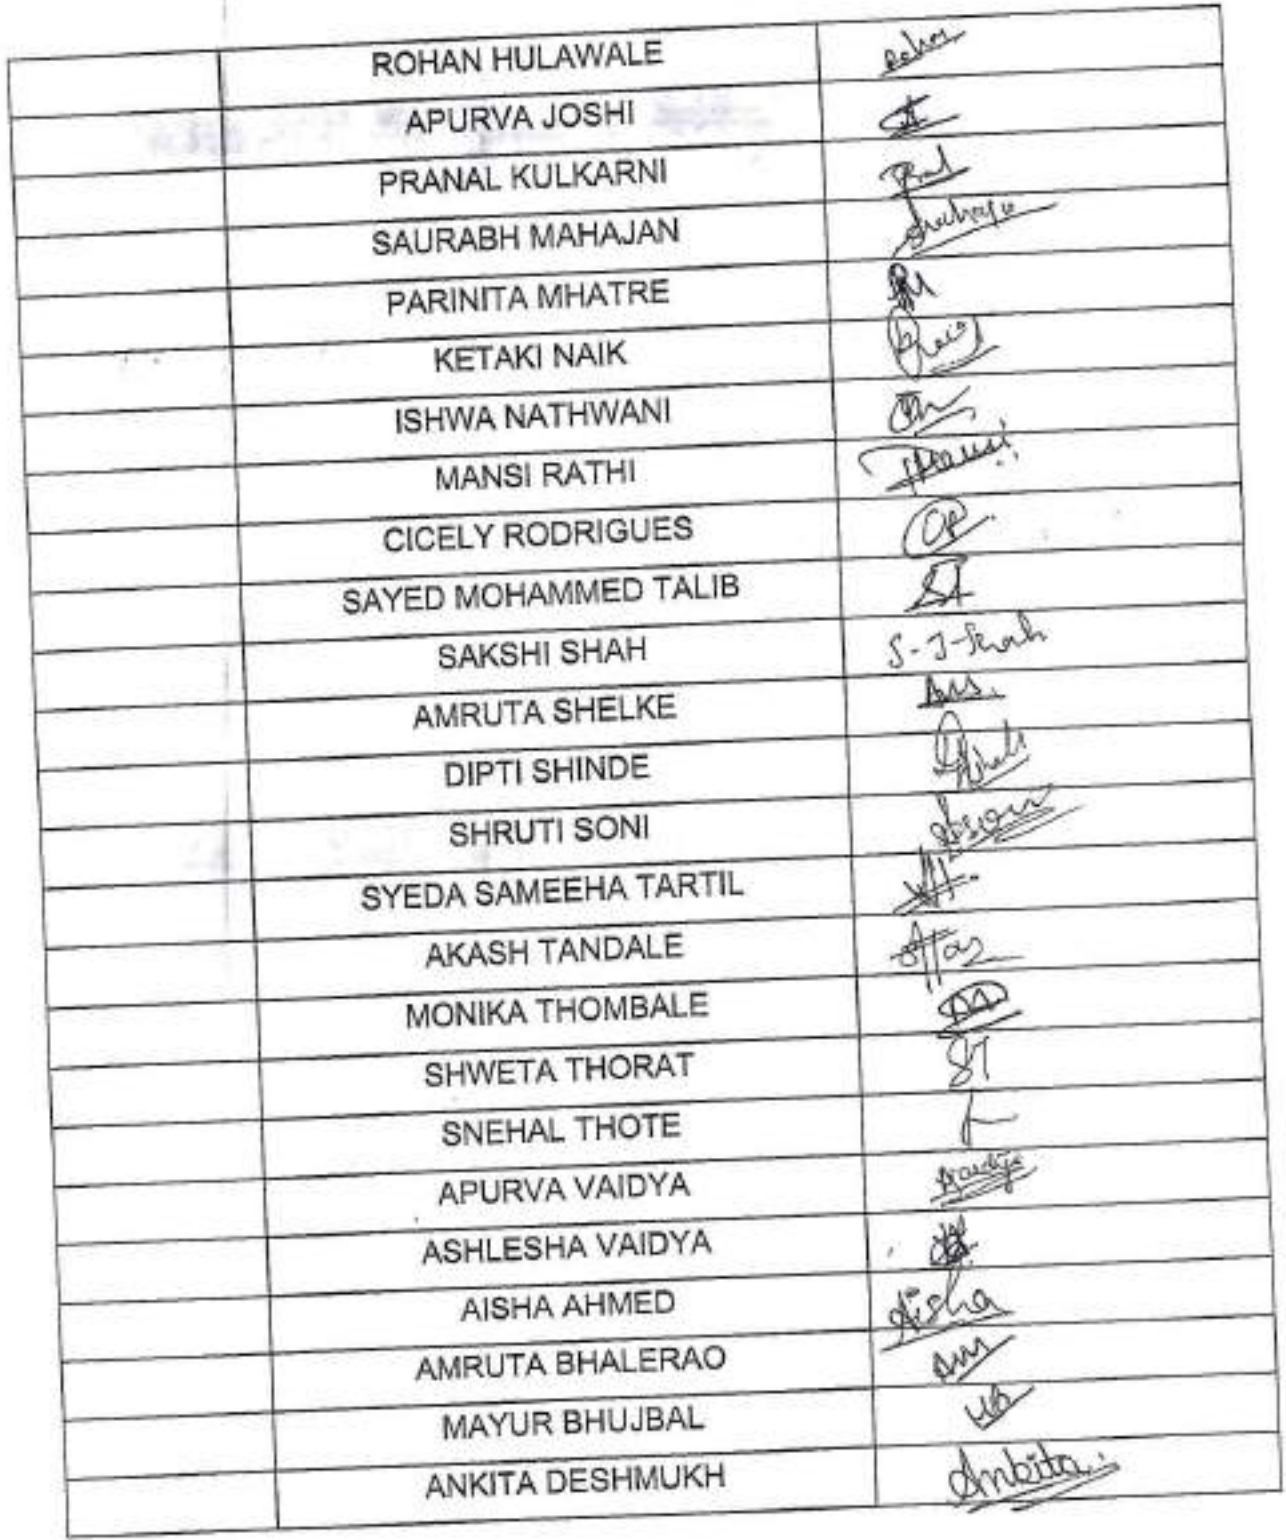 ROHAN HULAWALE Rohan
APURVA JOSHI
PRANAL KULKARNI
SAURABH MAHAJAN
PARINITA MHATRE
KETAKI NAIK
ISHWA NATHWANI
MANSI RATHI Mansi
CICELY RODRIGUES
SAYED MOHAMMED TALIB
SAKSHI SHAH S-J-Shah
AMRUTA SHELKE
DIPTI SHINDE
SHRUTI SONI
SYEDA SAMEEHA TARTIL
AKASH TANDALE
MONIKA THOMBALE
SHWETA THORAT ST
SNEHAL THOTE
APURVA VAIDYA
ASHLESHA VAIDYA
AISHA AHMED Aisha
AMRUTA BHALERAO
MAYUR BHUJBAL MB
ANKITA DESHMUKH Ankita